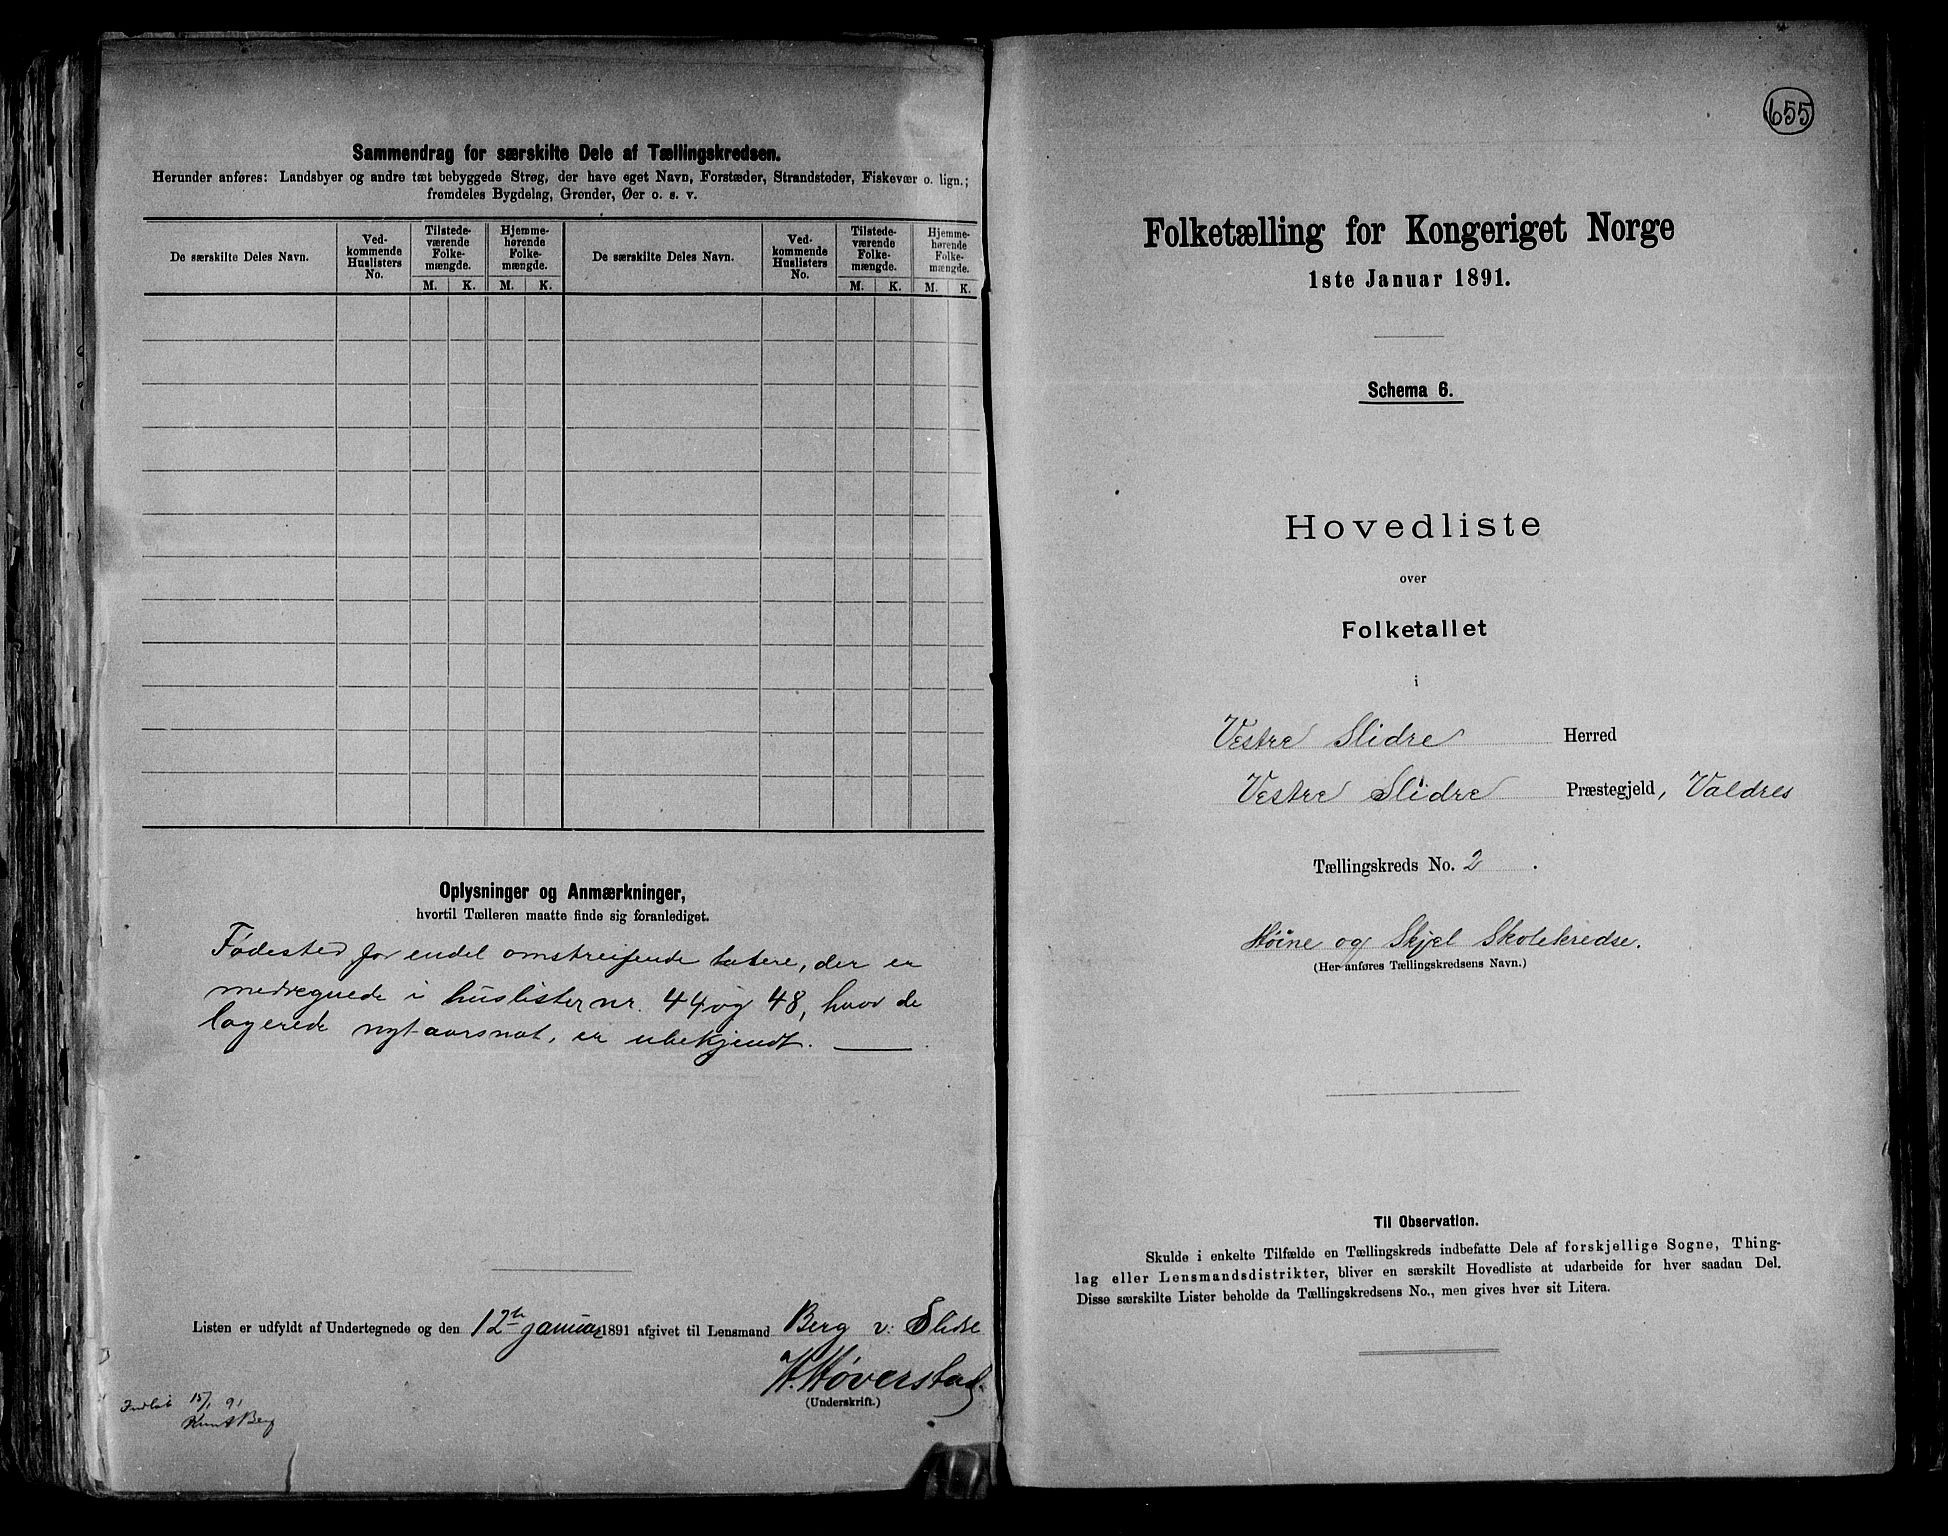 Sammendrag for særskilte Dele af Tællingskredsen.
Herunder anføres: Landsbyer og andre tæt bebyggede Strøg, der have eget Navn, Forstæder, Strandsteder, Fiskevær o. lign.;
fremdeles Bygdelag, Grender, Øer o. s. v.
De særskilte Deles Navn.
Ved-
kommende
Huslisters
No.
Tilstede-
værende
Folke-
mængde.
M. K.
Hjemme-
hørende
Folke-
mængde.
M. K.
De særskilte Deles Navn.
Ved-
kommende
Huslisters
No.
Tilstede-
værende
Folke-
mængde.
M. K.
Hjemme-
hørende
Folke-
mængde.
M. K.
Oplysninger og Anmærkninger,
hvortil Tælleren maatte finde sig foranlediget.
Fødested for endel omstreifende tatere, der er
medregnede i huslister nr. 44 og 48, hvor de
lagerede nytaarsnat, er ubekjendt.
Listen er udfyldt af Undertegnede og den 12te januar 1891 afgivet til Lensmand Berg v: Slidre
H. Høverstad.
(Underskrift.)
15/1 91
Knut Berg
655
Folketælling for Kongeriget Norge
1ste Januar 1891.
Schema 6.
Hovedliste
over
Folketallet
i
Vestre Slidre Herred
Vestre Slidre Præstegjeld, Valdres
Tællingskreds No. 2.
Høine og Skjel Skolekredse.
(Her anføres Tællingskredsens Navn.)
Til Observation.
Skulde i enkelte Tilfælde en Tællingskreds indbefatte Dele af forskjellige Sogne, Thing-
lag eller Lensmandsdistrikter, bliver en særskilt Hovedliste at udarbeide for hver saadan Del.
Disse særskilte Lister beholde da Tællingskredsens No., men gives hver sit Litera.